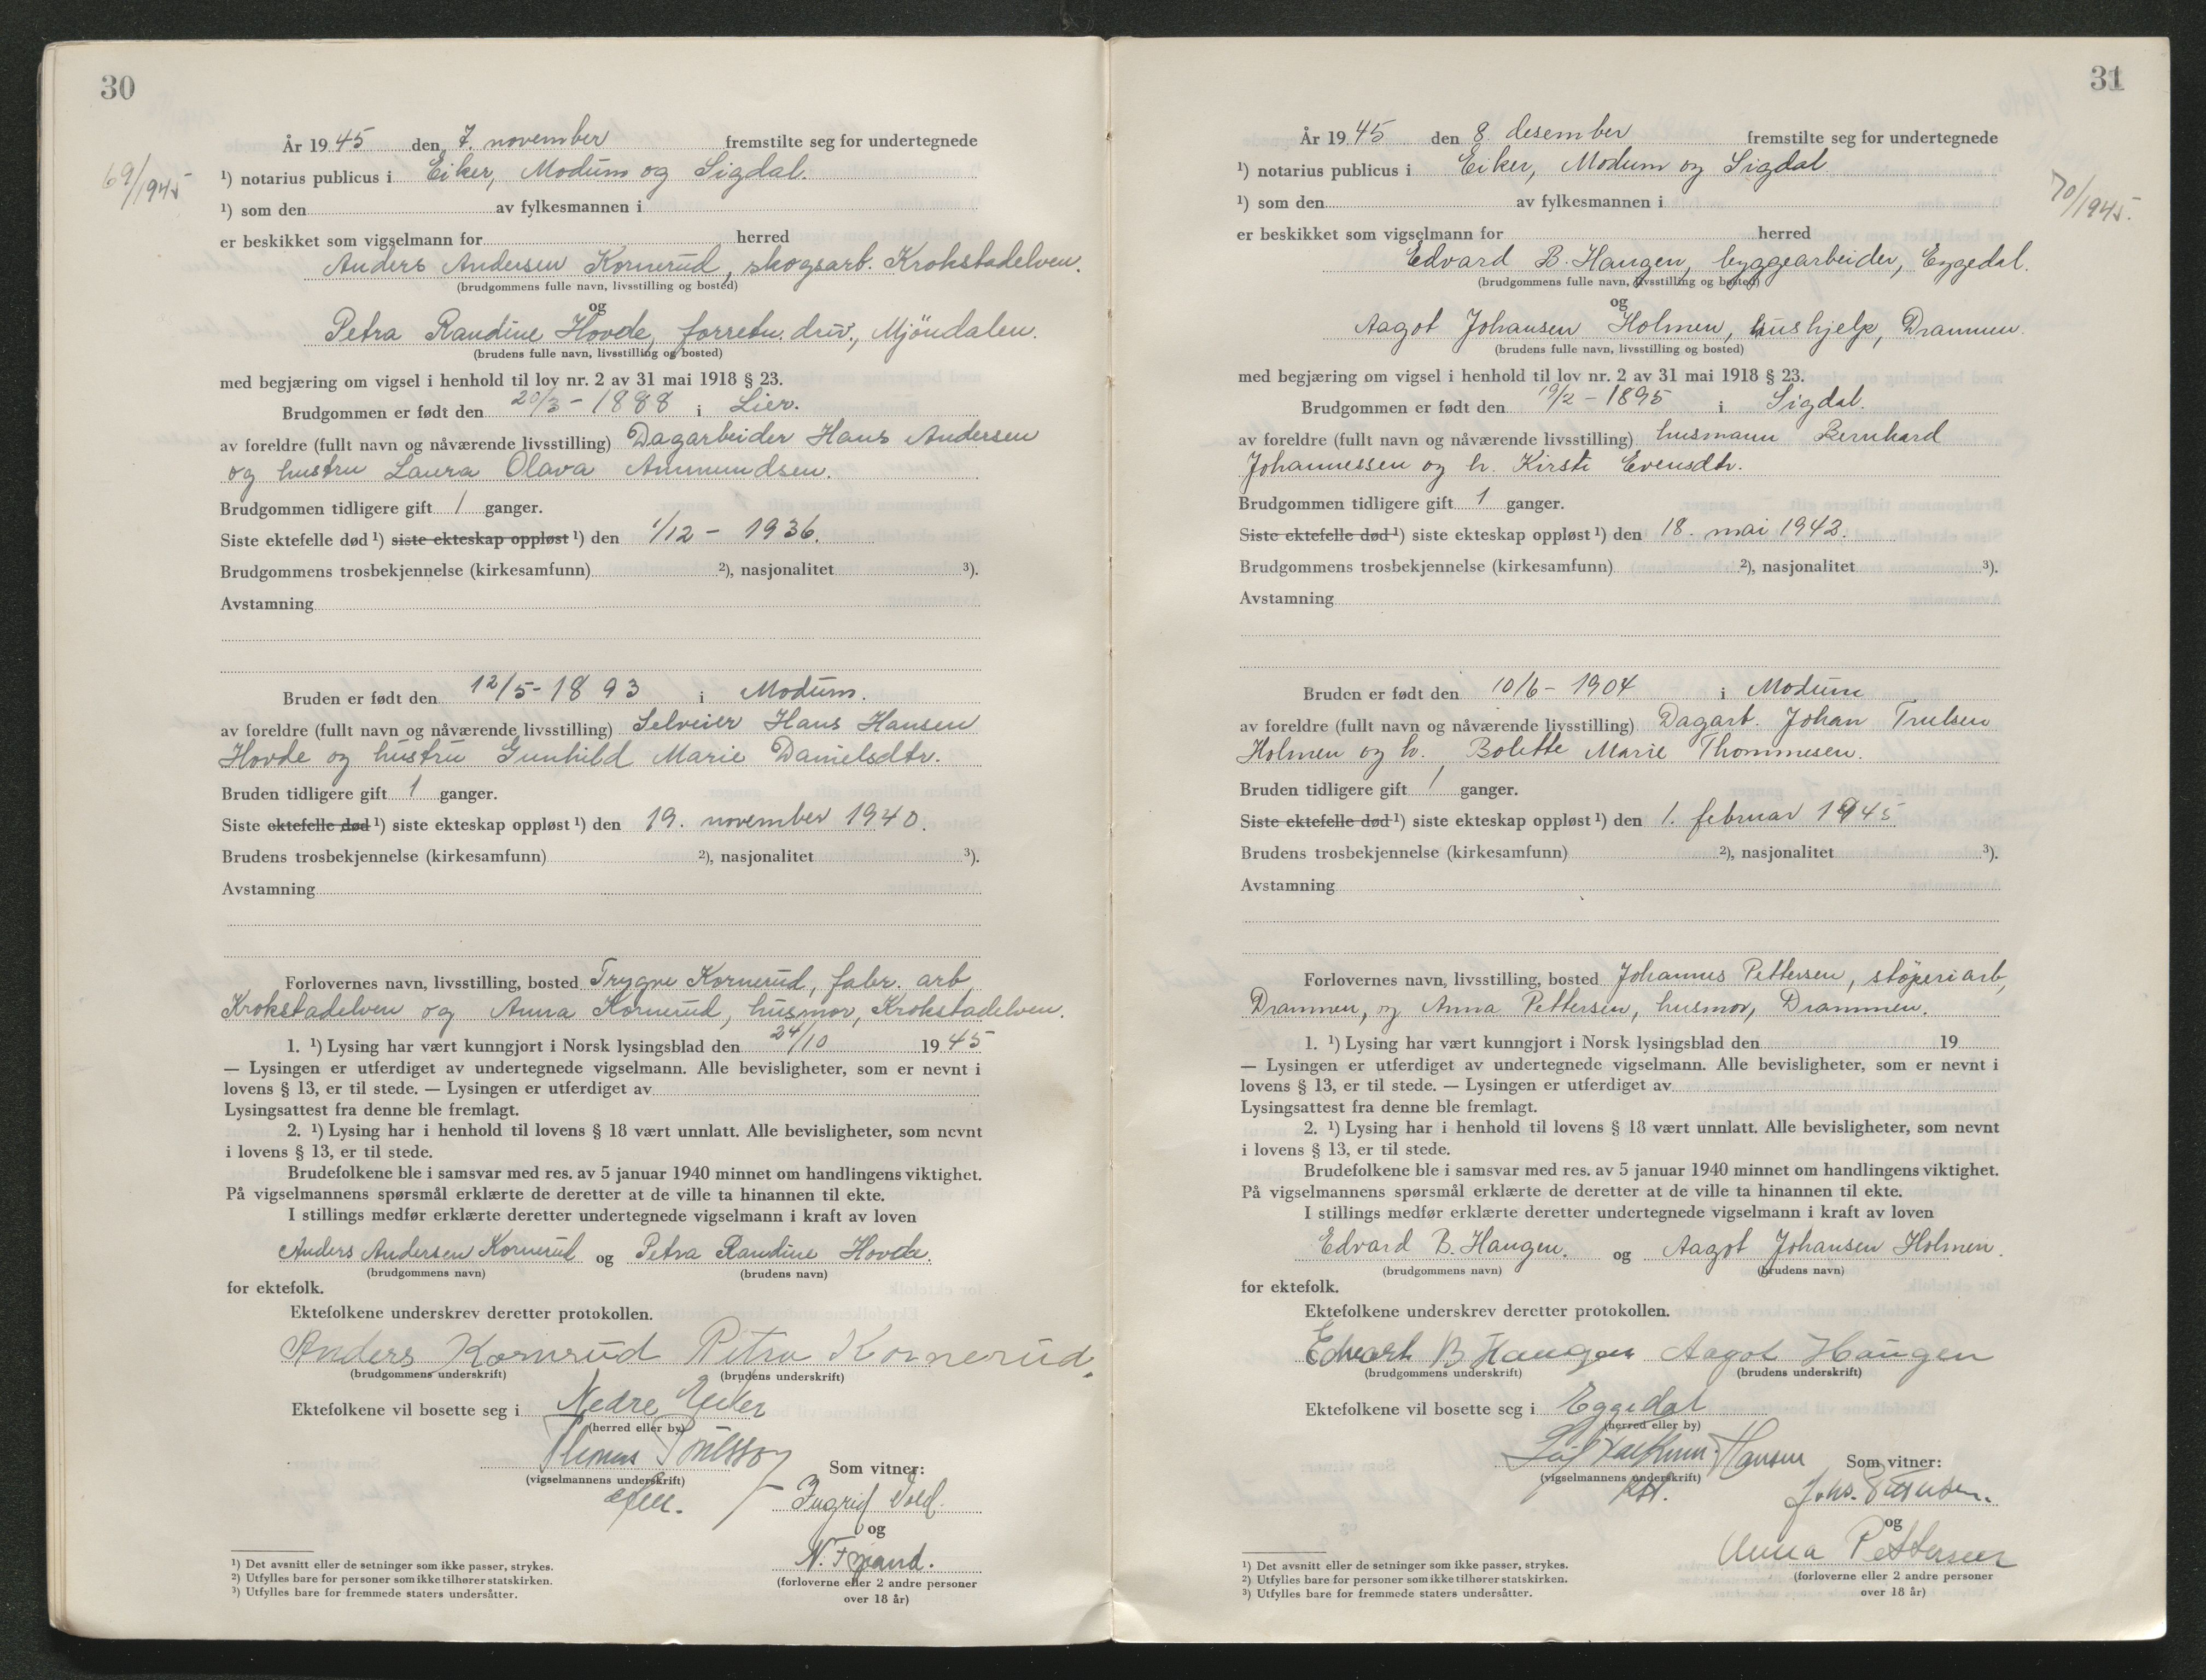 30
69/1945
År 1945 den 7. november fremstilte seg for undertegnede
¹) notarius publicus i Eiker, Modum og Sigdal.
¹) som den av fylkesmannen i
er beskikket som vigselmann for herred
Anders Andersen Kornerud, skogsarb. Krokstadelven.
(brudgommens fulle navn, livsstilling og bosted)
og
Petra Randine Hovde, forretn. driv., Mjöndalen.
(brudens fulle navn, livsstilling og bosted)
med begjæring om vigsel i henhold til lov nr. 2 av 31 mai 1918 § 23.
Brudgommen er født den 20/3 - 1888 i Lier.
av foreldre (fullt navn og nåværende livsstilling) Dagarbeider Hans Andersen
og hustru Laura Olava Ammundsen.
Brudgommen tidligere gift 1 ganger.
Siste ektefelle død ¹) siste ekteskap oppløst ¹) den 1/12 - 1936.
Brudgommens trosbekjennelse (kirkesamfunn) ²), nasjonalitet ³).
Avstamning
Bruden er født den 12/5 - 1893 i Modum.
av foreldre (fullt navn og nåværende livsstilling) Selveier Hans Hansen
Hovde og hustru Gunhild Marie Danielsdtr.
Bruden tidligere gift 1 ganger.
Siste ektefelle død ¹) siste ekteskap oppløst ¹) den 19. november 1940.
Brudens trosbekjennelse (kirkesamfunn) ²), nasjonalitet ³).
Avstamning
Forlovernes navn, livsstilling, bosted Trygve Kornerud, fabr. arb,
Krokstadelven og Anna Kornerud, husmor, Krokstadelven.
1. ¹) Lysing har vært kunngjort i Norsk lysingsblad den 24/10 1945
— Lysingen er utferdiget av undertegnede vigselmann. Alle bevisligheter, som er nevnt i
lovens § 13, er til stede. — Lysingen er utferdiget av
Lysingsattest fra denne ble fremlagt.
2. ¹) Lysing har i henhold til lovens § 18 vært unnlatt. Alle bevisligheter, som nevnt
i lovens § 13, er til stede.
Brudefolkene ble i samsvar med res. av 5 januar 1940 minnet om handlingens viktighet.
På vigselmannens spørsmål erklærte de deretter at de ville ta hinannen til ekte.
I stillings medfør erklærte deretter undertegnede vigselmann i kraft av loven
Anders Andersen Kornerud og Petra Randine Hovde.
(brudgommens navn) (brudens navn)
for ektefolk.
Ektefolkene underskrev deretter protokollen.
Anders Kornerud Petra Kornerud.
(brudgommens underskrift) (brudens underskrift)
Ektefolkene vil bosette seg i Nedre Eiker
(herred eller by)
(vigselmannens underskrift)
Som vitner:
Ingrid Vold.
og
N.
(forloverne eller 2 andre personer
over 18 år)
¹) Det avsnitt eller de setninger som ikke passer, strykes.
²) Utfylles bare for personer som ikke tilhører statskirken.
³) Utfylles bare for fremmede staters undersåtter.
31
70/1945.
År 1945 den 8. desember fremstilte seg for undertegnede
¹) notarius publicus i Eiker, Modum og Sigdal
¹) som den av fylkesmannen i
er beskikket som vigselmann for herred
Edvard B. Haugen, byggearbeider, Eggedal.
(brudgommens fulle navn, livsstilling og bosted)
og
Aagot Johansen Holmen, hushjelp, Drammen.
(brudens fulle navn, livsstilling og bosted)
med begjæring om vigsel i henhold til lov nr. 2 av 31 mai 1918 § 23.
Brudgommen er født den 19/2 - 1895 i Sigdal.
av foreldre (fullt navn og nåværende livsstilling) husmann Bernhard
Johannessen og h. Kirsti Evensdtr.
Brudgommen tidligere gift 1 ganger.
Siste ektefelle død ¹) siste ekteskap oppløst ¹) den 18. mai 1942.
Brudgommens trosbekjennelse (kirkesamfunn) ²), nasjonalitet ³).
Avstamning
Bruden er født den 10/6 - 1904 i Modum
av foreldre (fullt navn og nåværende livsstilling) Dagarb. Johan Trulsen
Holmen og h. Bolette Marie Thommesen.
Bruden tidligere gift 1 ganger.
Siste ektefelle død ¹) siste ekteskap oppløst ¹) den 1. februar 1945
Brudens trosbekjennelse (kirkesamfunn) ²), nasjonalitet ³).
Avstamning
Forlovernes navn, livsstilling, bosted Johannes Pettersen, støperiarb,
Drammen, og Anna Pettersen, husmor, Drammen.
1. ¹) Lysing har vært kunngjort i Norsk lysingsblad den 19
— Lysingen er utferdiget av undertegnede vigselmann. Alle bevisligheter, som er nevnt i
lovens § 13, er til stede. — Lysingen er utferdiget av
Lysingsattest fra denne ble fremlagt.
2. ¹) Lysing har i henhold til lovens § 18 vært unnlatt. Alle bevisligheter, som nevnt
i lovens § 13, er til stede.
Brudefolkene ble i samsvar med res. av 5 januar 1940 minnet om handlingens viktighet.
På vigselmannens spørsmål erklærte de deretter at de ville ta hinannen til ekte.
I stillings medfør erklærte deretter undertegnede vigselmann i kraft av loven
Edvard B. Haugen. og Aagot Johansen Holmen.
(brudgommens navn) (brudens navn)
for ektefolk.
Ektefolkene underskrev deretter protokollen.
Edvart B Haugen Aagot Haugen
(brudgommens underskrift) (brudens underskrift)
Ektefolkene vil bosette seg i Eggedal
(herred eller by)
Hansen
(vigselmannens underskrift)
Som vitner:
Johs. Pettersen.
og
Anna Pettersen
(forloverne eller 2 andre personer
over 18 år)
¹) Det avsnitt eller de setninger som ikke passer, strykes.
²) Utfylles bare for personer som ikke tilhører statskirken.
³) Utfylles bare for fremmede staters undersåtter.